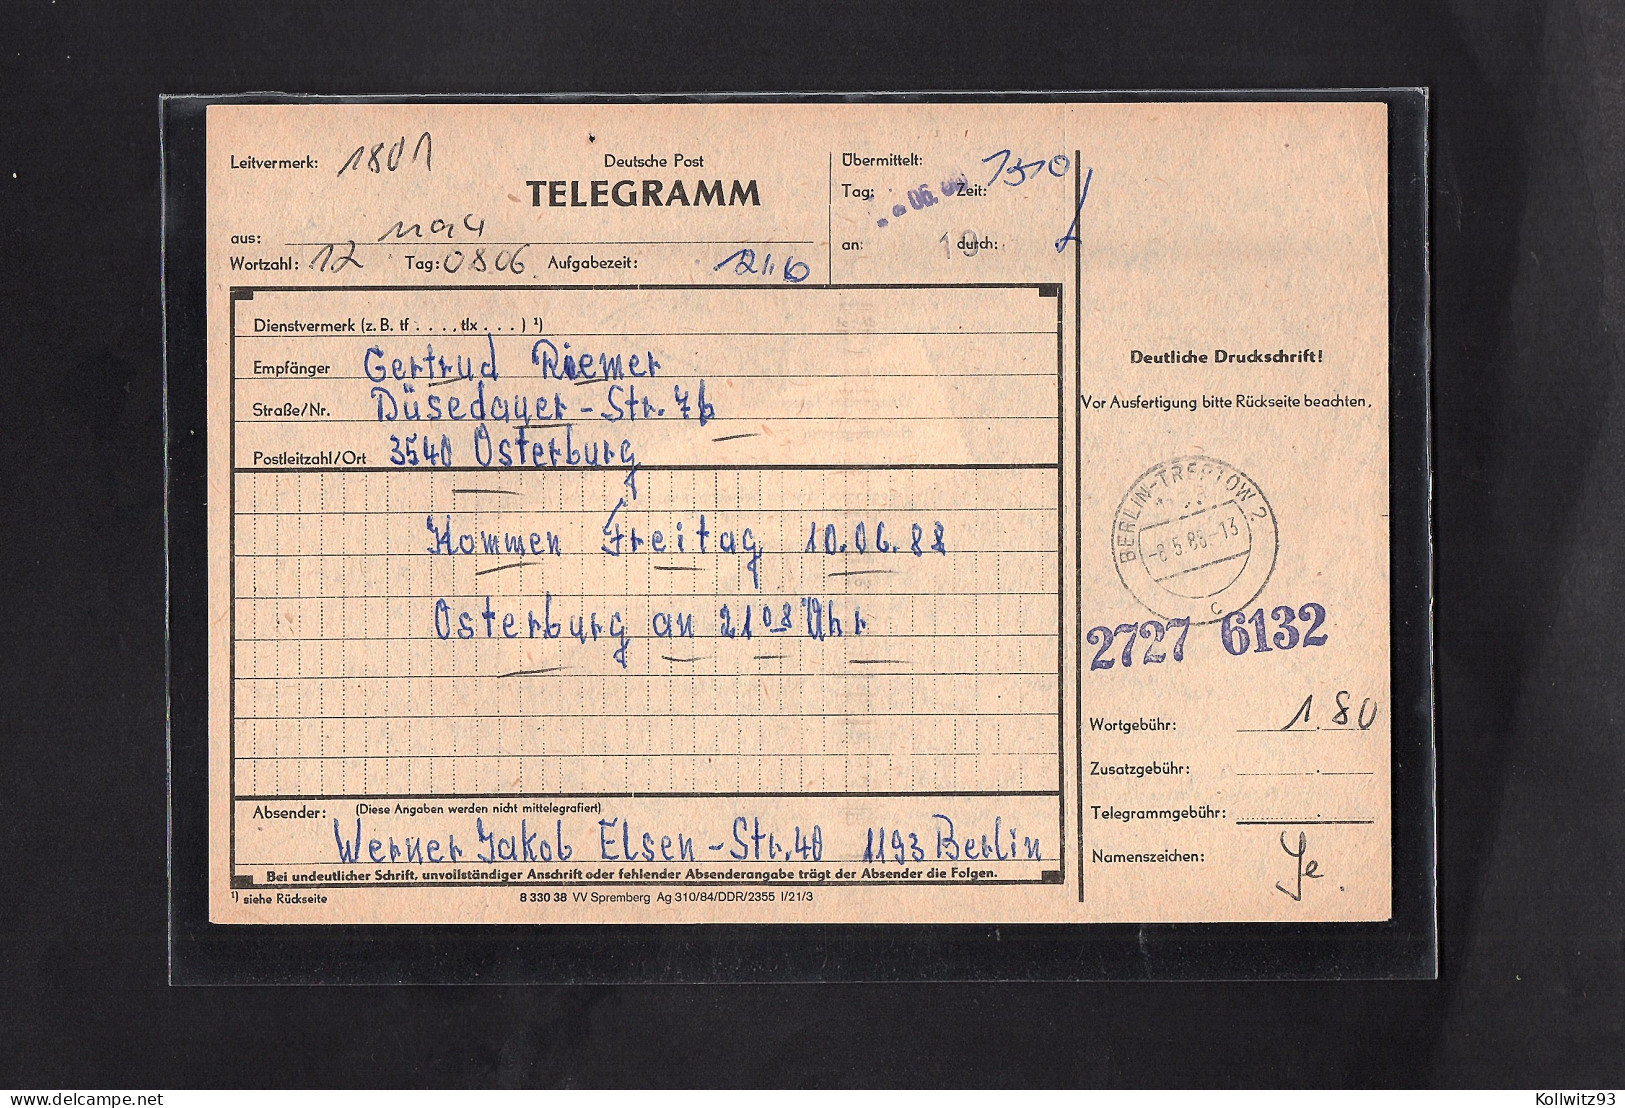 Leitvermerk: 1801
Deutsche Post
TELEGRAMM
aus:
Wortzahl: 12 Tag: 0806 Aufgabezeit:
Übermittelt:
Tag: 06. Zeit: 1310
an: durch:
Dienstvermerk (z. B. tf . . . . , tlx . . . ) ¹)
Empfänger Gertrud Riemer
Straße/Nr. Düsedauer-Str. 7b
Postleitzahl/Ort 3540 Osterburg
Kommen Freitag 10.06.88
Osterburg an 21⁰⁸ Uhr
Absender: (Diese Angaben werden nicht mittelegrafiert)
Werner Jakob Elsen-Str. 40 1193 Berlin
Bei undeutlicher Schrift, unvollständiger Anschrift oder fehlender Absenderangabe trägt der Absender die Folgen.
¹) siehe Rückseite 8 330 38 VV Spremberg Ag 310/84/DDR/2355 I/21/3
Deutliche Druckschrift!
Vor Ausfertigung bitte Rückseite beachten.
BERLIN-TREPTOW 2
c
2727 6132
Wortgebühr: 1.80
Zusatzgebühr:
Telegrammgebühr:
Namenszeichen: Je
delcampe.net
Kollwitz93